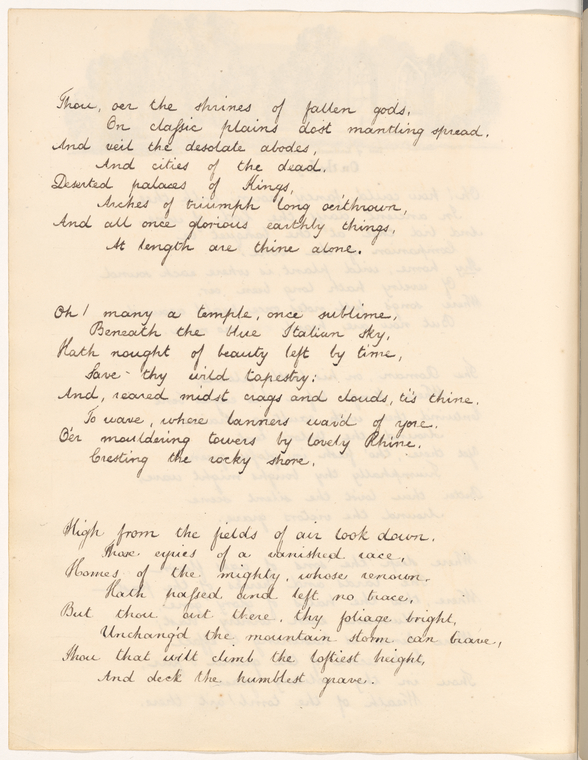 Thou, oer the shrines of fallen gods,
On classic plains dost mantling spread,
And veil the desolate abodes,
And cities of the dead.
Deserted palaces of Kings,
Arches of triumph long o'erthrown,
And all once glorious earthly things,
At length are thine alone.
Oh! many a temple, once sublime,
Beneath the blue Italian sky,
Hath nought of beauty left by time,
Save thy wild tapestry:
And, reared midst crags and clouds, tis thine.
To wave, where banners wav'd of yore.
O'er mouldering towers by lovely Rhine,
Cresting the rocky shore.
High from the fields of air look down,
Those eyries of a vanished race,
Homes of the mighty, whose renown,
Hath passed and left no trace,
But thou art there, thy foliage bright,
Unchang'd the mountain storm can brave,
Thou that wilt climb the loftiest height,
And deck the humblest grave.